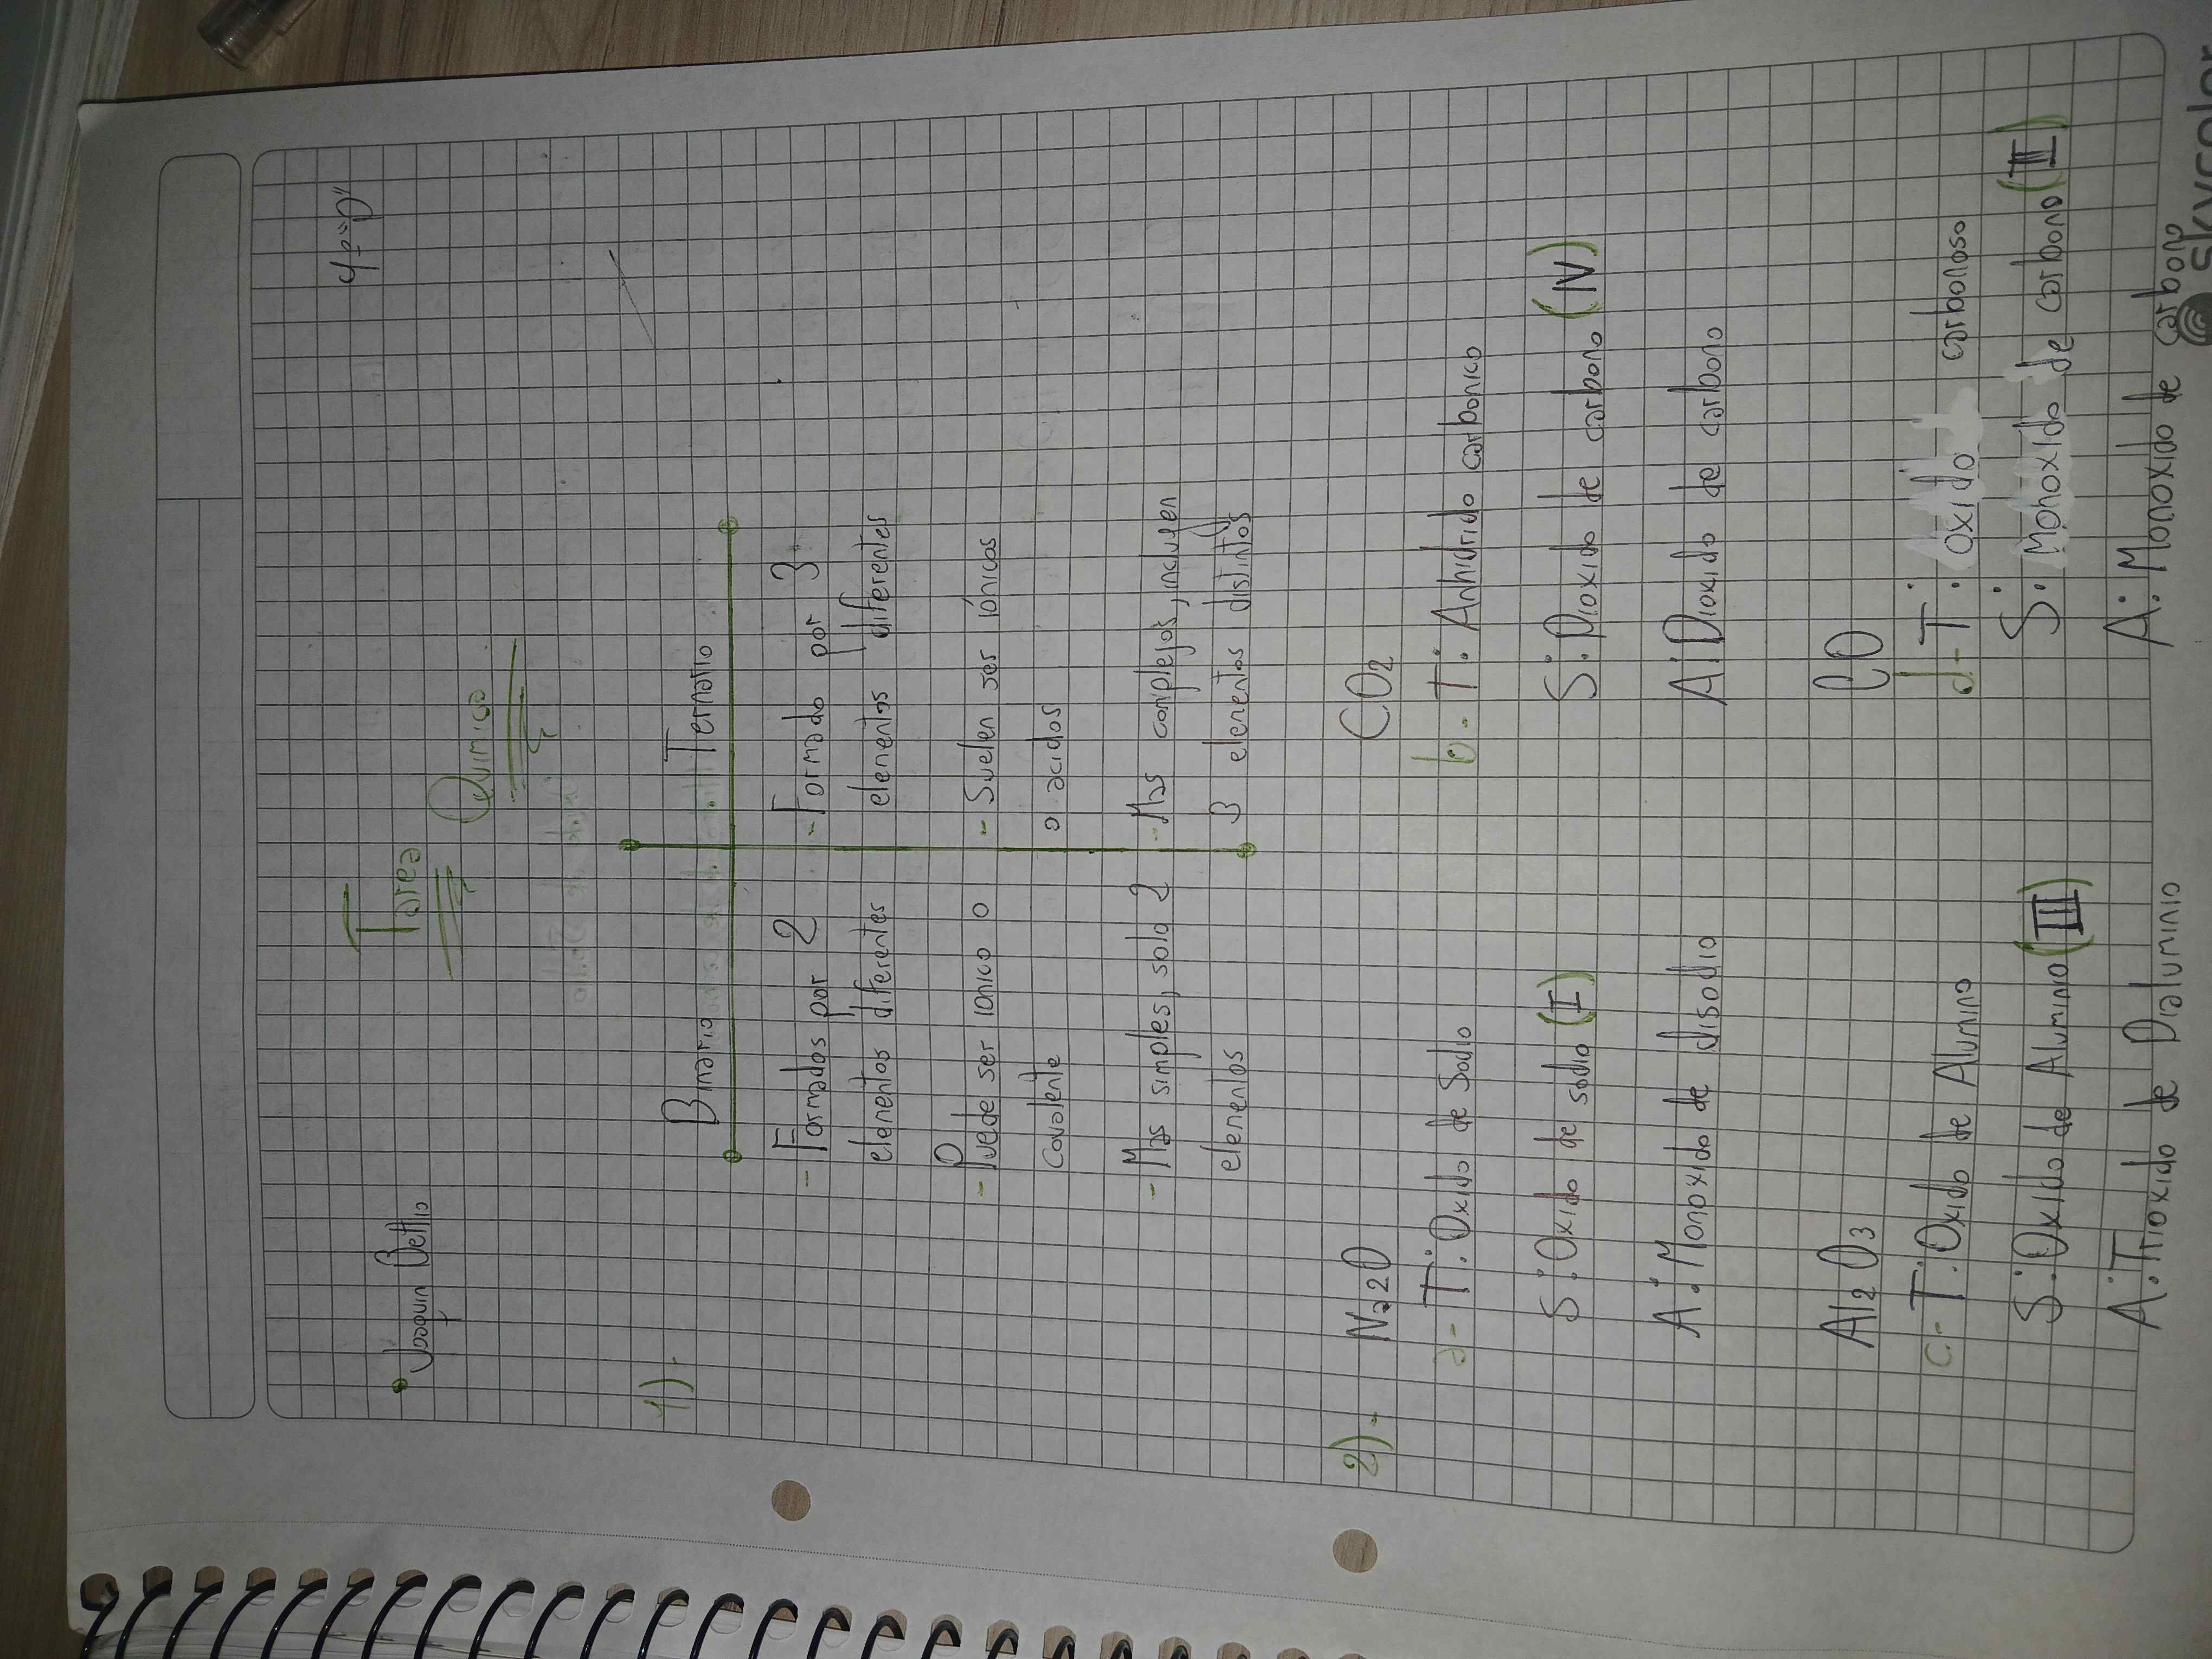 Joaquin Bettio
Tarea
4-º"D"
Quimica
1)-
Binario Ternario
- Formados por 2 elementos diferentes
- Puede ser Ionico o Covalente
- Mas simples, solo 2 elementos
- Formado por 3 elementos diferentes
- Suelen ser iónicos o acidos
- Mas complejos, incluyen 3 elementos distintos
2)-
Na2O
a- T: Oxido de Sodio
S: Oxido de sodio (I)
A: Monoxido de disodio
CO2
b- T: Anhidrido carbonico
S: Dioxido de carbono (IV)
A: Dioxido de carbono
Al2O3
c- T: Oxido de Alumino
S: Oxido de Aluminio (III)
A: Trioxido de Dialuminio
CO
d- T: oxido carbonoso
S: Monoxido de carbono (II)
A: Monoxido de carbono
skycolor